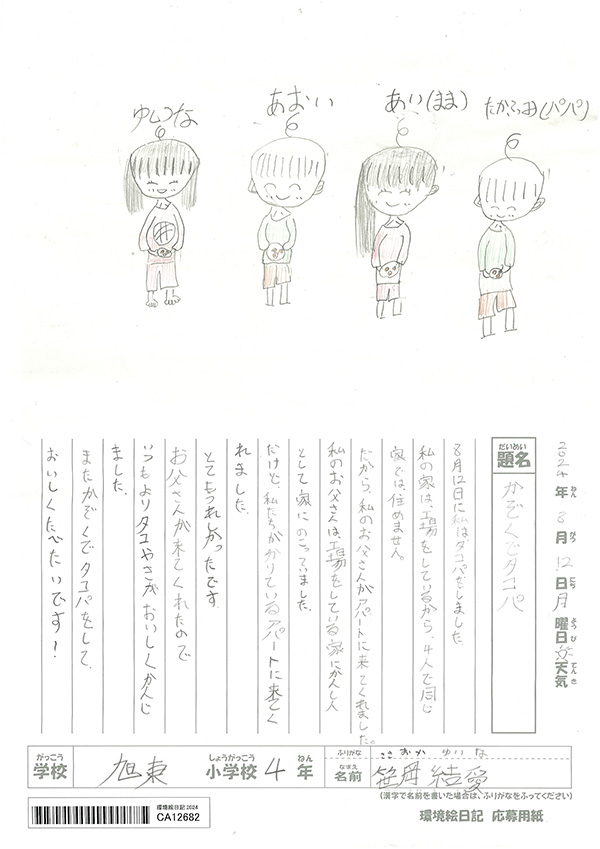 ゆいな
あおい
あい(まま)
2024年8月12日月曜日
天気
だいめい
題名
かぞくでタコパ
8月12日に私はタコパをしました。
私の家は、工場をしているから、4人で同じ
家では、住めません。
だから、私のお父さんがアパートに来てくれました。
私のお父さんは、工場をしている家にかんし人
として家にのこっていました。
だけど、私たちがかりているアパートに来てく
れました。
とてもうれしかったです。
お父さんが来てくれたので
いつもよりタコやきがおいしくかんじ
ました。
またかぞくでタコパをして、
おいしくたべたいです!
がっこう しょうがっこう ねん
学校 旭東 小学校 4年
ふりがな ささおか ゆいな
なまえ
名前 笹岡 結愛
(漢字で名前を書いた場合は、ふりがなをふってください)
環境絵日記2024
CA12682
環境絵日記 応募用紙